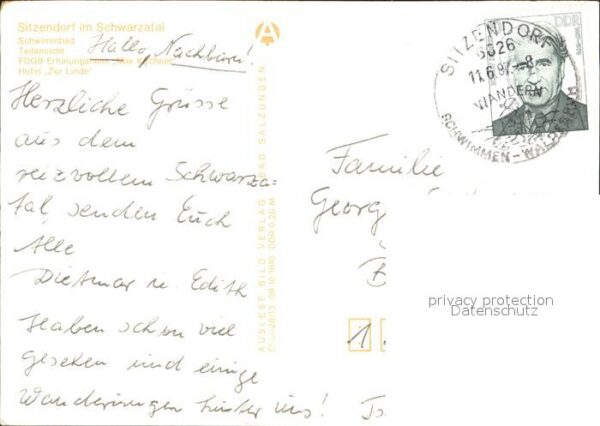 Sitzendorf im Schwarzatal
Schwimmbad
Teilansicht
FDGB-Erholungsheim „Max
Hotel „Zur Linde“
Hallo, Nachbarn!
Herzliche Grüsse
aus dem
reizvollem Schwarza-
tal, senden Euch
Alle
Dietmar u. Edith
Haben schon viel
gesehen und einige
Wanderungen hinter uns!
AUSLESE-BILD-VERLAG BAD SALZUNGEN
DDR 0,20 M
DDR
SITZENDORF
6626
11.6.87.-8
WANDERN
SCHWIMMEN -
Familie
Georg
B
1
privacy protection
Datenschutz